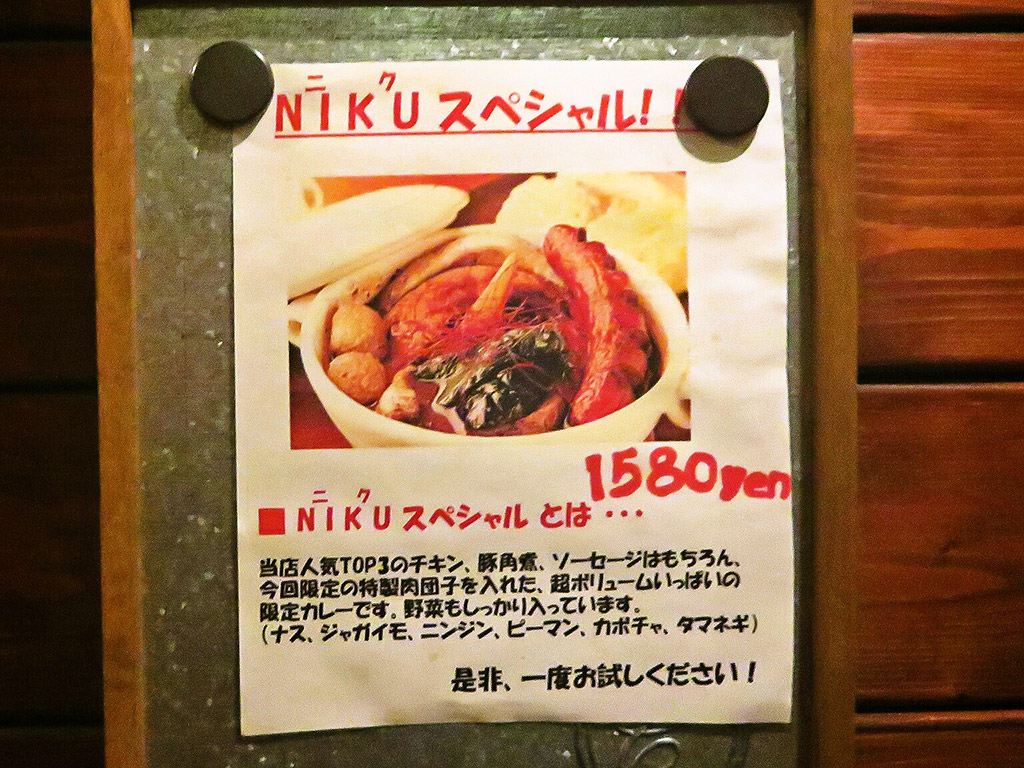 ニク
NIKUスペシャル!!
1580yen
ニク
■NIKUスペシャルとは・・・
当店人気TOP3のチキン、豚角煮、ソーセージはもちろん、
今回限定の特製肉団子を入れた、超ボリュームいっぱいの
限定カレーです。野菜もしっかり入っています。
(ナス、ジャガイモ、ニンジン、ピーマン、カボチャ、タマネギ)
是非、一度お試しください!